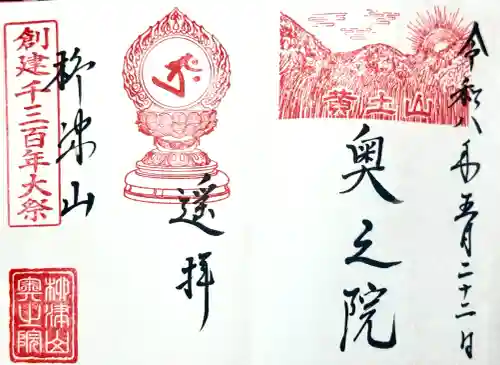 令和八年五月二十二日
黄土山
奥之院
遥拝
創建千三百年大祭
柳津山
柳津山
奥之院